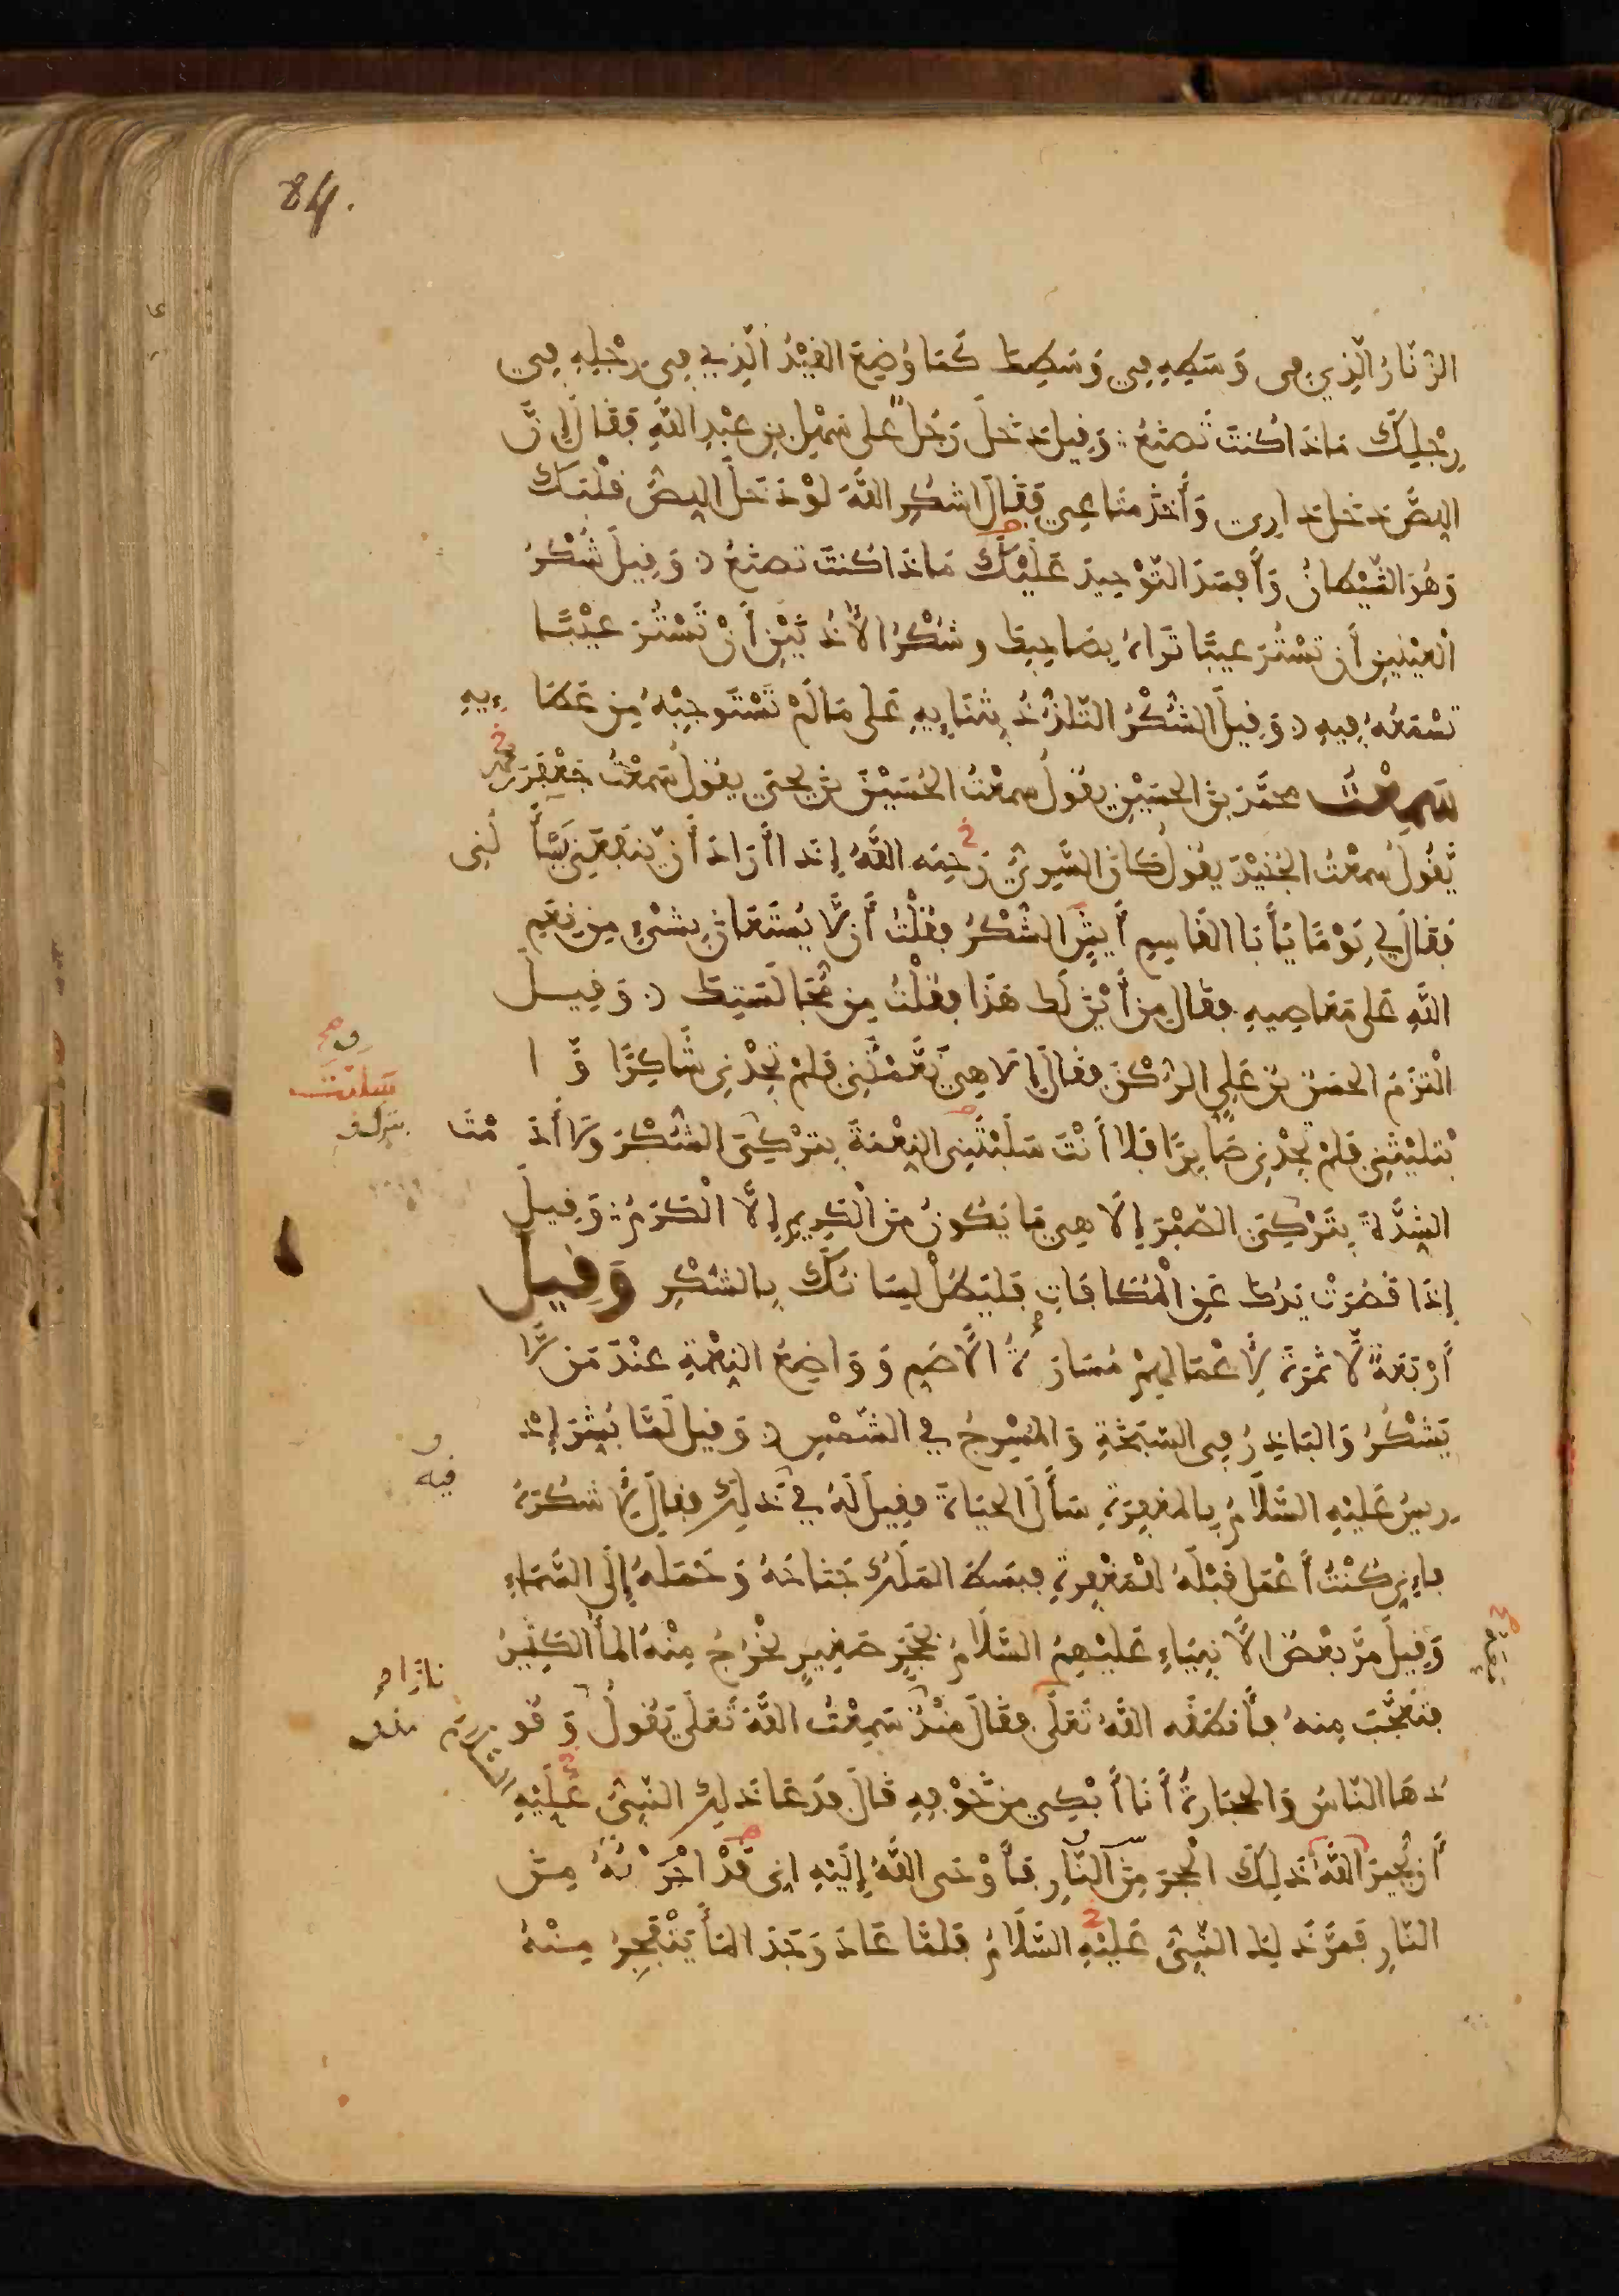 84.
الزُّنَّارُ الَّذِي فِي وَسَطِهِ فِي وَسَطِكَ كَمَا وُضِعَ الْقَيْدُ الَّذِي فِي رِجْلِهِ فِي
رِجْلِكَ مَاذَا كُنتَ تَصْنَعُ وَقِيلَ دَخَلَ رَجُلٌ عَلَى سَهْلِ بنِ عَبْدِ اللَّهِ فَقَالَ إِنَّ
اللِّصَّ دَخَلَ دَارِي وَأَخَذَ مَتَاعِي فَقَالَ اشْكُرِ اللَّهَ لَوْ دَخَلَ اللِّصُّ قَلْبَكَ
وَهُوَ الشَّيْطَانُ وَأَفْسَدَ التَّوْحِيدَ عَلَيْكَ مَاذَا كُنتَ تَصْنَعُ وَقِيلَ شُكْرُ
الْعَيْنَيْنِ أَن تَسْتُرَ عَيْبًا تَرَاهُ بِصَاحِبِكَ وشُكْرُ الأُذُنَيْنِ أَنْ تَسْتُرَ عَيْبًا
تَسْمَعُهُ فِيهِ وَقِيلَ الشُّكْرُ التَّلَذُّذُ بِثَنَايِهِ عَلَى مَا لَمْ تَسْتَوْجِبْهُ مِن عَطَاءِيهِ
سَمِعْتُ مُحَمَّدَ بْنَ الحُسَيْنِ يَقُولُ سَمِعْتُ الحُسَيْنَ بْنَ يَحْيَى يَقُولُ سَمِعْتُ جَعْفَرَ
يَّقُولُ سَمِعْتُ الجُنَيْدَ يَقُولُ كَانَ السَّرِيُّ رَحِمَهُ اللَّهُ إِذَا أَرَادَ أَن يَّنفَعَنِي يَسْأَلُنِي
فَقَالَ لِي يَوْمًا يَأَبَا الْقَاسِمِ أَيْشٍ الشُّكْرُ فَقُلْتُ أَن لَّا يُسْتَعَانَ بِشَيْءٍ مِن نِعَمِ
اللَّهِ عَلَى مَعَاصِيهِ فَقَالَ مِنْ أَيْنَ لَكَ هَذَا فَقُلْتُ مِن مُّجَالَسَتِكَ وَقِيلَ
الْتَزَمَ الحَسَنُ بْنُ عَلِيٍّ الرُّكْنَ فَقَالَ إِلَاهِي نَعَّمْتَنِي فَلَمْ تَجِدْنِي شَاكِرًا وَّا
بْتَلَيْتَنِي فَلَمْ تَجِدْنِي صَابِرًا فَلَا أَنْتَ سَلَبْتَنِي النِّعْمَةَ بِتَرْكِيَ الشُّكْرَ وَلَا أَدَمْتَ
الشِّدَّةَ بِتَرْكِيَ الصَّبْرَ إِلَاهِي مَا يَكُونُ مِنَ الْكَرِيمِ إِلَّا الْكَرَمُ وَقِيلَ
إِذَا قَصُرَتْ يَدُكَ عَنِ الْمُكَافَاتِ فَلْيَطُلْ لِسَانُكَ بِالشُّكْرِ وَقِيلَ
أَرْبَعَةٌ لَّا ثَمَرَةَ لِأَعْمَالِهِمْ مُسَارَّةُ الْأَصَمِّ وَوَاضِعُ النِّعْمَةِ عِنْدَ مَن لَّا
يَشْكُرُ وَالبَاذِرُ فِي السَّبَخَةِ وَالمُسْرِجُ فِي الشَّمْسِ وَقِيلَ لَمَّا بُشِّرَ إِدْ
رِيسُ عَلَيْهِ السَّلَامُ بِالمَغْفِرَةِ سَأَلَ الحَيَاةَ فَقِيلَ لَهُ فِي ذَلِكَ فَقَالَ لِأَشْكُرَهُ
فَإِنِّي كُنْتُ أَعْمَلُ قَبْلَهُ لِلْمَغْفِرَةِ فَبَسَطَ المَلَكُ جَنَاحَهُ وَحَمَلَهُ إِلَى السَّمَاءِ
وَقِيلَ مَرَّ بَعْضُ الأَنبِيَاءِ عَلَيْهِمُ السَّلَامُ بِحَجَرٍ صَغِيرٍ يَخْرُجُ مِنْهُ المَأُ الكَثِيرُ
فَتَعَجَّبَ مِنهُ فَأَنطَقَهُ اللَّهُ تَعَلَى فَقَالَ مُنْذُ سَمِعْتُ اللَّهَ تَعَلَى يَقُولُ وَقُو
دُهَا النَّاسُ وَالحِجَارَةُ أَنَا أَبْكِي مِنْ خَوْفِهِ قَالَ فَدَعَا ذَلِكَ النَّبِيُّ عَلَيْهِ
أَن يُجِيرَ اللَّهُ ذَلِكَ الحَجَرَ مِنَ النَّارِ فَأَوْحَى اللَّهُ إِلَيْهِ إِنِّي قَدْ أَجَرْتُهُ مِنَ
النَّارِ فَمَرَّ ذَلِكَ النَّبِيُّ عَلَيْهِ السَّلَامُ فَلَمَّا عَادَ وَجَدَ المَأَ يَتَفَجَّرُ مِنْهُ
فيه
نارًا